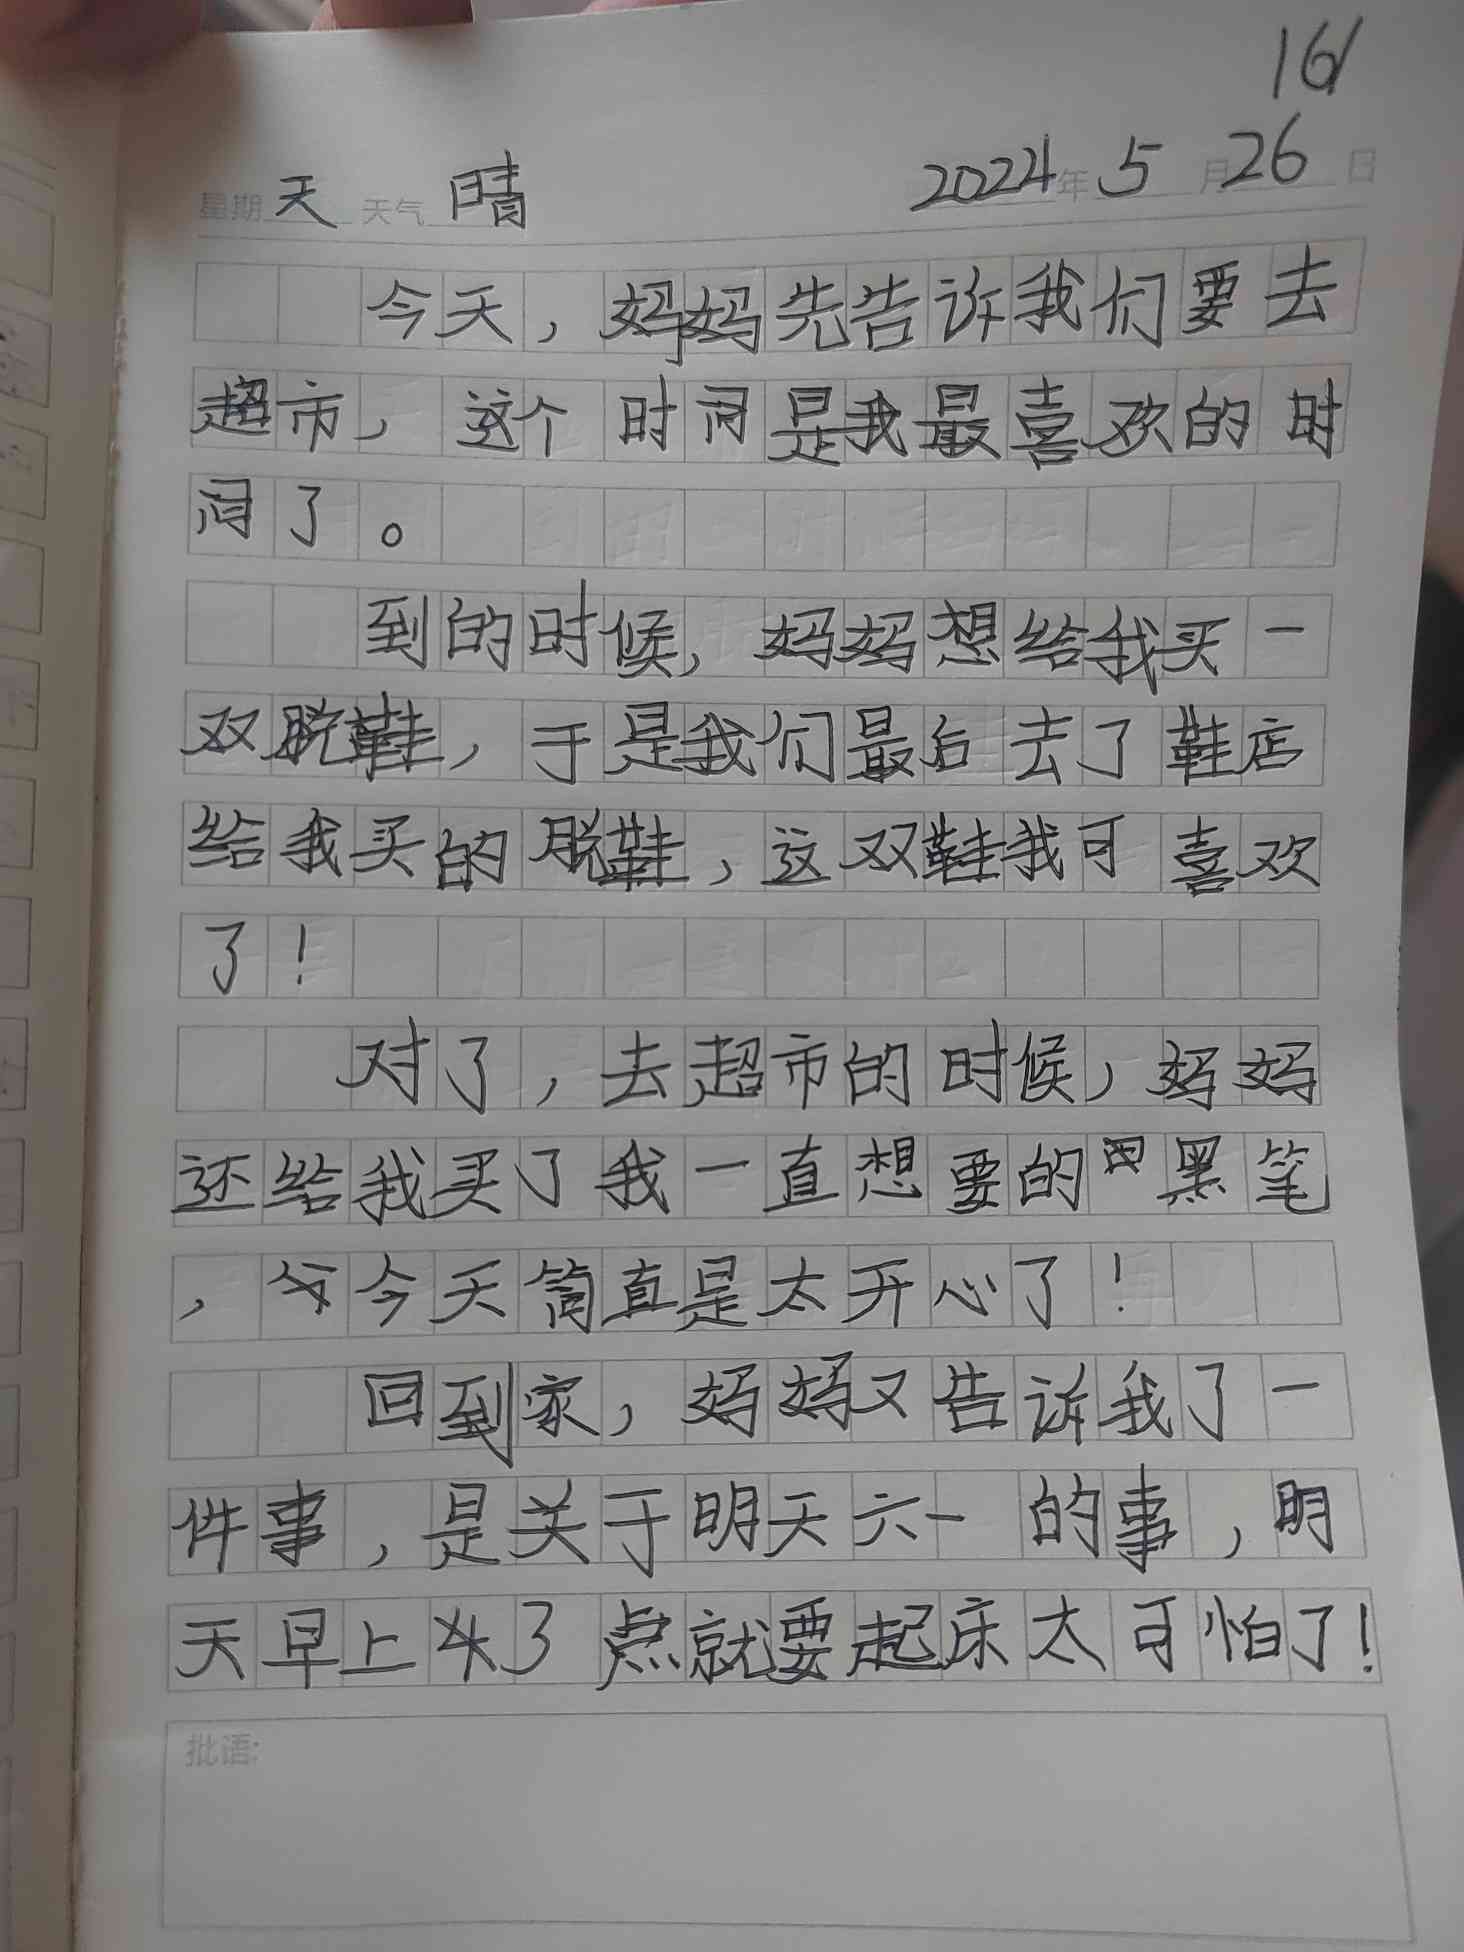 161
星期天 天气晴 2024年5月26日
今天，妈妈先告诉我们要去
超市，这个时间是我最喜欢的时
间了。
到的时候，妈妈想给我买一
双脱鞋，于是我们最后去了鞋店
给我买的脱鞋，这双鞋我可喜欢
了！
对了，去超市的时候，妈妈
还给我买了我一直想要的黑笔
，今天简直是太开心了！
回到家，妈妈又告诉我了一
件事，是关于明天六一的事，明
天早上3点就要起床太可怕了！
批语: